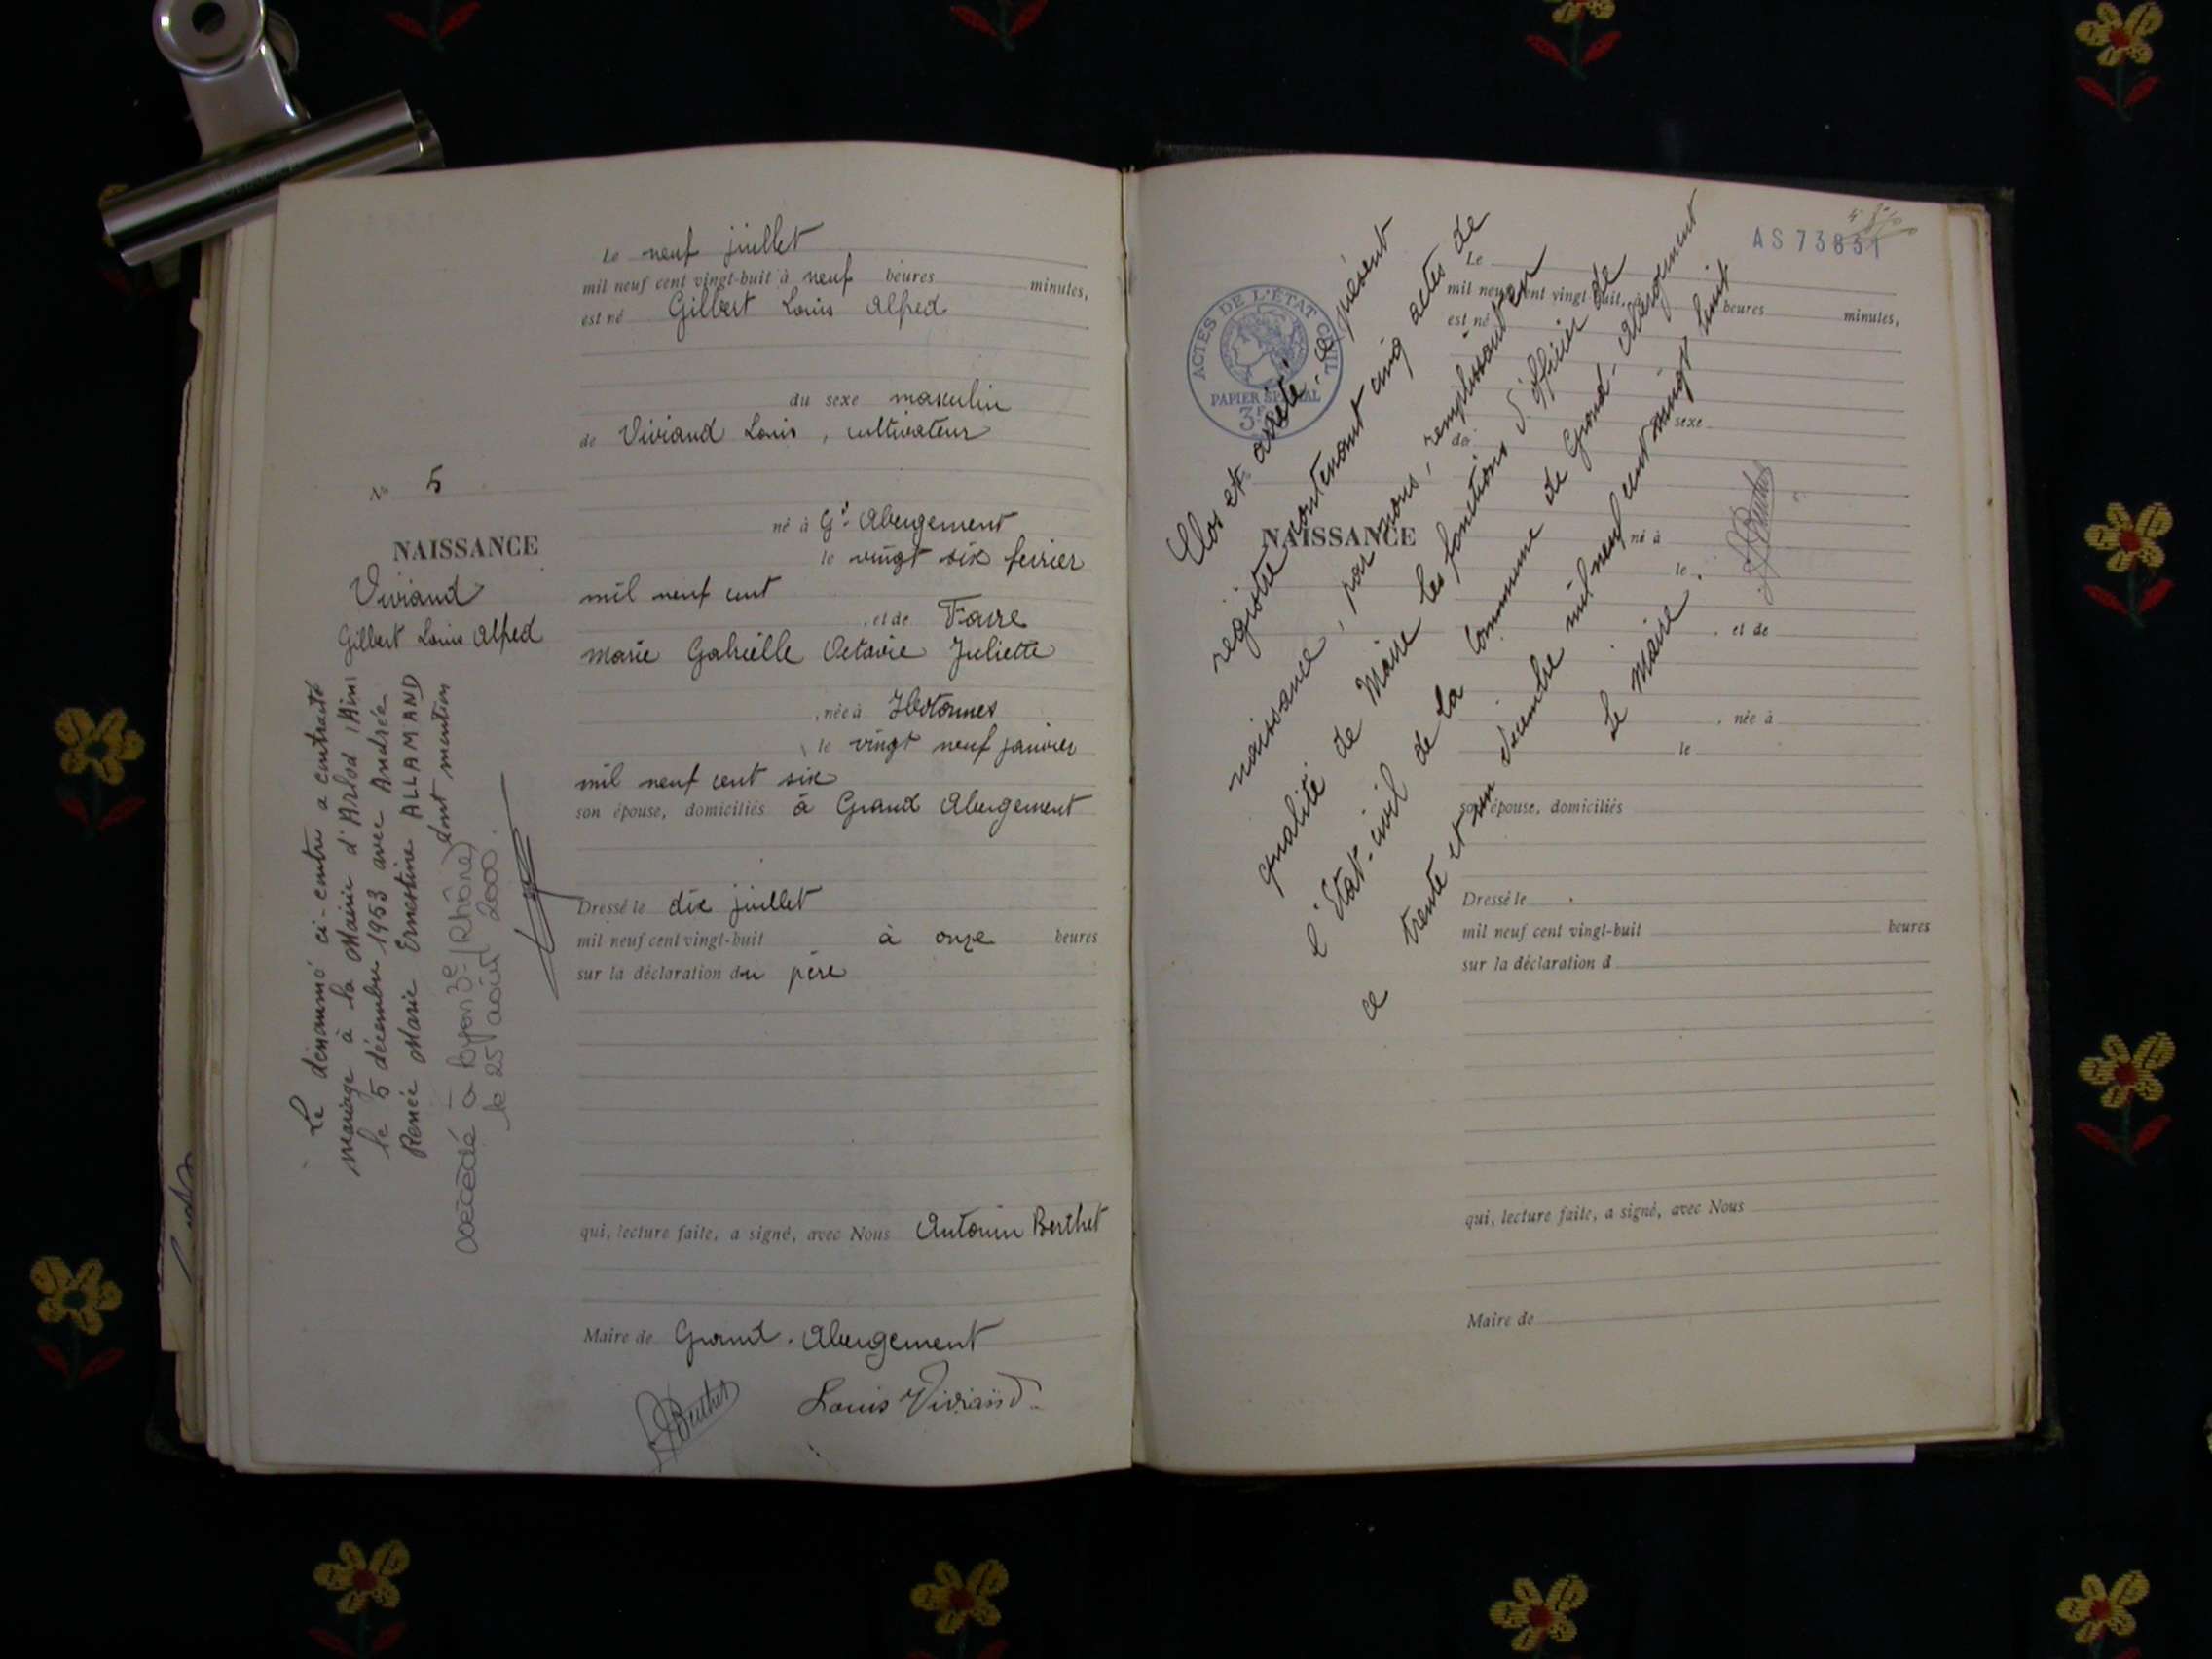 Le neuf juillet
mil neuf cent vingt-huit à neuf heures minutes,
est né Gilbert Louis Alfred
du sexe masculin
de Viviand Louis, cultivateur
né à Gd Abergement
le vingt six fevrier
mil neuf cent
, et de Favre
Marie Gabrielle Octavie Juliette
, née à Hotonnes
le vingt neuf janvier
mil neuf cent six
son épouse, domiciliés à Grand Abergement
Dressé le dix juillet
mil neuf cent vingt-huit à onze heures
sur la déclaration du père
qui, lecture faite, a signé, avec Nous Antonin Berthet
Maire de Grand-Abergement
Berthet Louis Viviand
N° 5
NAISSANCE
Viviand
Gilbert Louis Alfred
Le dénommé ci-contre a contracté
mariage à la Mairie d'Arlod (Ain)
le 5 décembre 1953 avec Andrée
Renée Marie Ernestine ALLAMAND
dont mention
Décédé à Lyon 3e (Rhône)
le 25 août 2000.
AS 73831
ACTES DE L'ÉTAT CIVIL
PAPIER SPÉCIAL
Clos et arrêté le présent
registre contenant cinq actes de
naissance, par nous, remplissant en
qualité de Maire les fonctions d'officier de
l'État-civil de la Commune de Grand-Abergement
ce trente et un décembre mil neuf cent vingt huit
Le Maire.
Berthet
Le
mil neuf cent vingt-huit, à heures minutes,
est né
sexe
de
NAISSANCE
né à
le
, et de
, née à
le
son épouse, domiciliés
Dressé le
mil neuf cent vingt-huit heures
sur la déclaration d
qui, lecture faite, a signé, avec Nous
Maire de